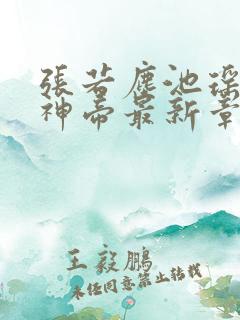 張若塵池瑤
神帝最新章
王毅鵬
未经同意禁止转载